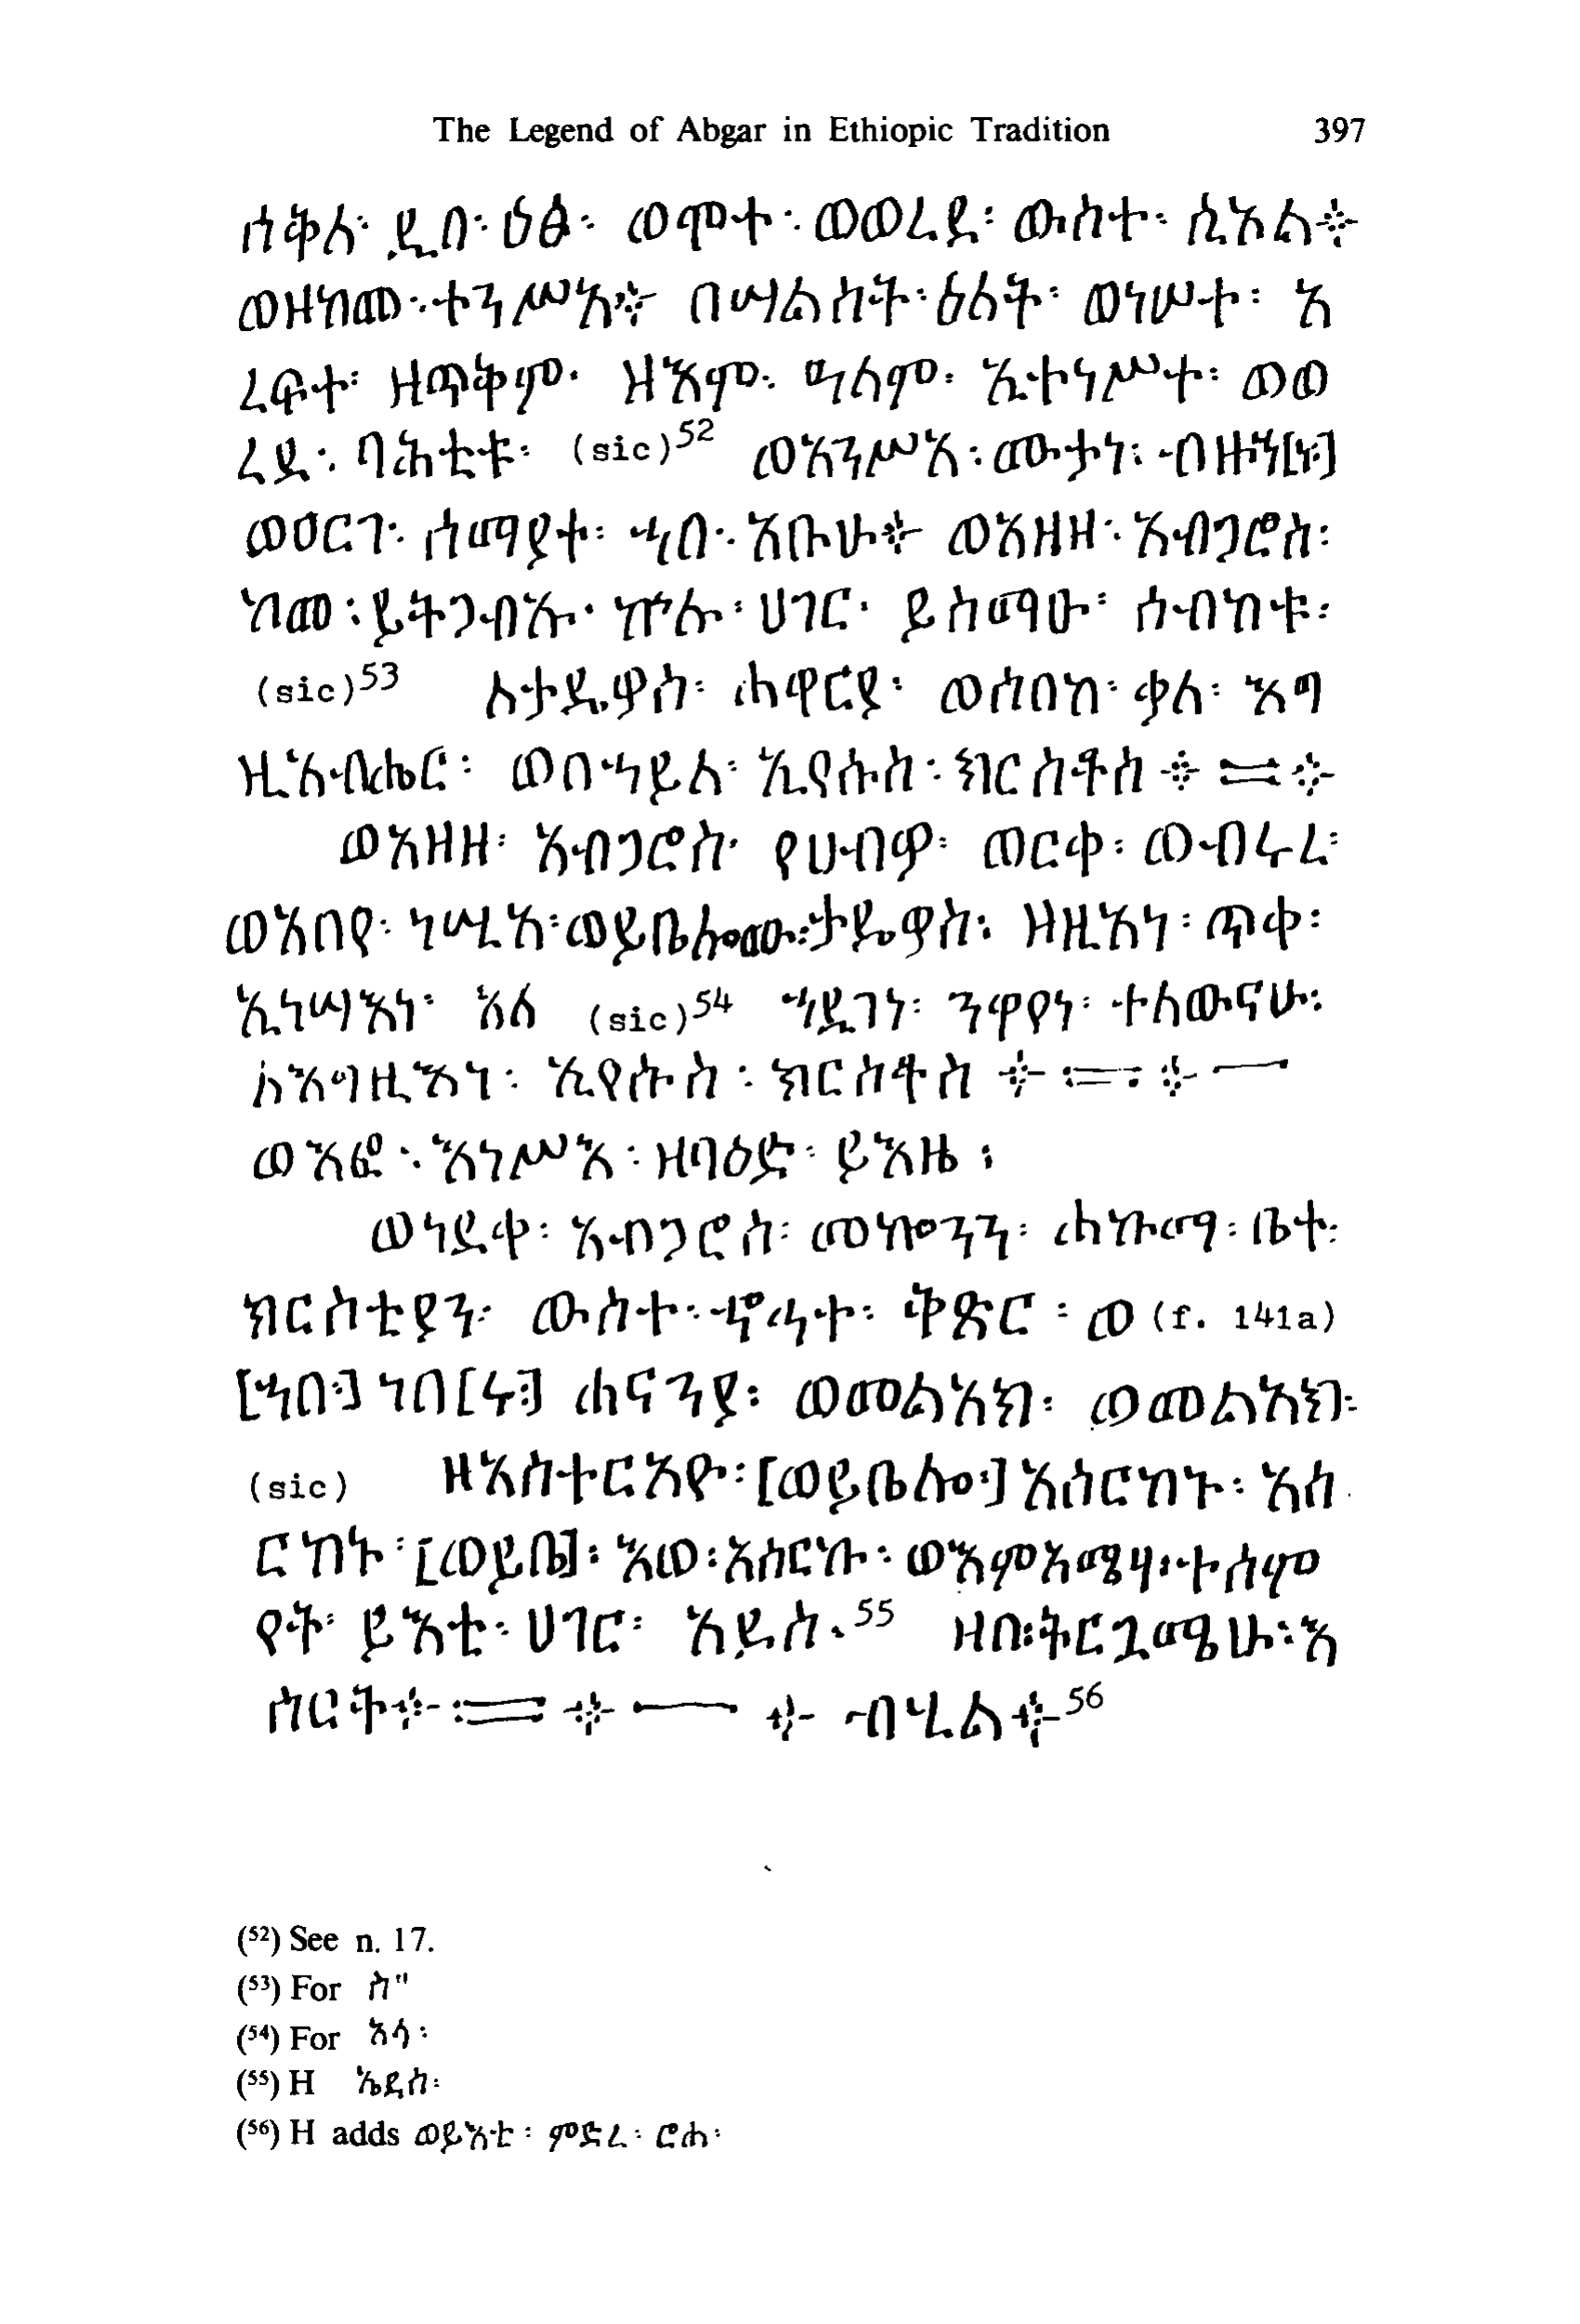 The Legend of Abgar in Ethiopic Tradition 397
ሰቅለ፡ ዲበ፡ ዕፅ፡ ወሞተ፡ ወወረደ፡ ውስተ፡ ሲኦል፨
ወዘከመ፡ ተንሥአ፨ በሣልስት፡ ዕለት፡ ወነሥተ፡ አ
ረፍተ፡ ዘጥቅም፡ ዘእም፡ ዓለም፡ ኢተነሥተ፡ ወወ
ረደ፡ ባሕቲቱ፡ (sic)52 ወአንሥአ፡ ሙታነ፡ ብዙኃ[ነ፡]
ወዐርገ፡ ሰማያተ፡ ኀበ፡ አቡሁ፨ ወአዘዘ፡ አብጋሮስ፡
ከመ፡ ይትጋብኡ፡ ኵሉ፡ ሀገር፡ ይስማዑ፡ ሰብከቱ፡
(sic)53 ለታዴዎስ፡ ሐዋርያ፡ ወሰበከ፡ ቃለ፡ እግ
ዚአብሔር፡ ወበኀይለ፡ ኢየሱስ፡ ክርስቶስ፨ = ፨
ወአዘዘ፡ አብጋሮስ፡ የሀብዎ፡ ወርቀ፡ ወብሩረ፡
ወአበየ፡ ነሢአ፡ ወይቤሎሙ፡ ታዴዎስ፡ ዘዚአነ፡ ጥቀ፡
ኢነሣእነ፡ አለ (sic)54 ኀደገነ፡ ንዋየነ፡ ተለውናሁ፡
ለእግዚእነ፡ ኢየሱስ፡ ክርስቶስ ፨ = ፨ —
ወእፎ፡ እነሥእ፡ ዘባዕድ፡ ይእዜ፡
ወነደቀ፡ አብጋሮስ፡ መኰንን፡ ሐኑማ፡ ቤተ፡
ክርስቲያን፡ ውስተ፡ ኆኅተ፡ ቅጽር፡ ወ (f. 141a)
[ኀበ፡] ነበ[ሩ፡] ሐናንያ፡ ወመልአክ፡ ወመልአክ፡
(sic) ዘአስተርአዮ፡ [ወይቤሎ፡] አሰርከኑ፡ አሰ
ርከኑ፡ [ወይቤ]፡ እወ፡ አሰርኩ፡ ወእምአሜሃ፡ ተሰም
የት፡ ይእቲ፡ ሀገር፡ አይስ፡55 ዘበ፡ ትርጓሜሁ፡ እ
ስርት፨ = ፨ — ፨ ብሂል፨56
(52) See n. 17.
(53) For ስ"
(54) For አላ፡
(55) H ኤዴስ፡
(56) H adds ወይእቲ፡ ምድረ፡ ሮሐ፡